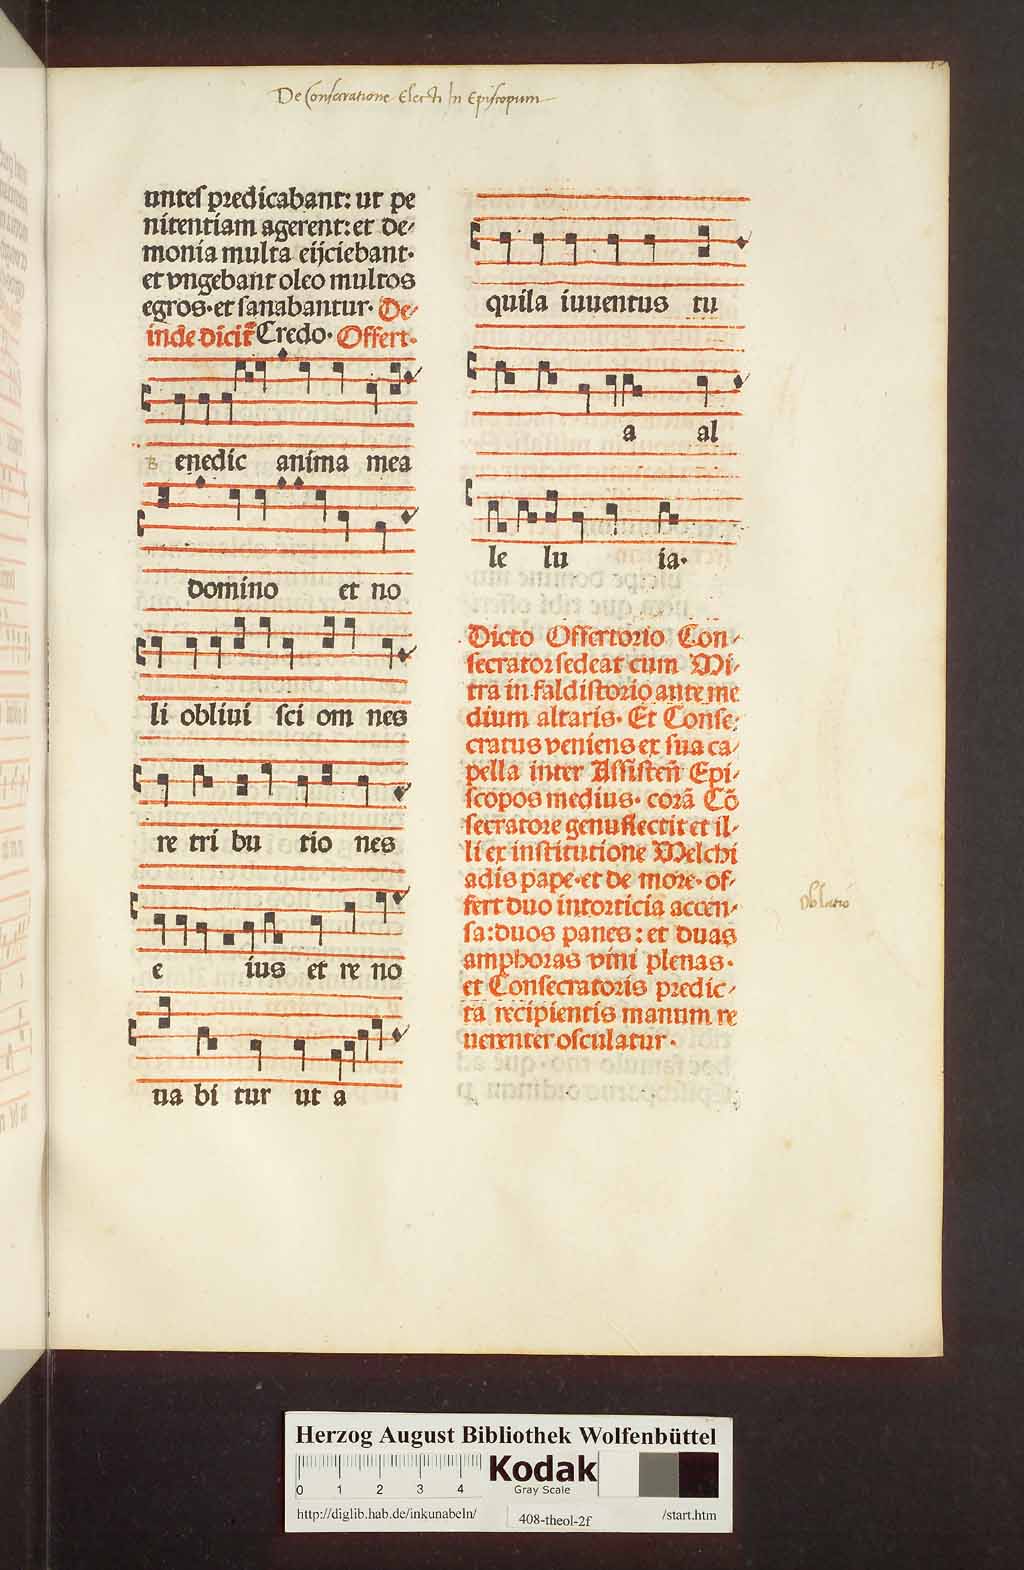 De Consecratione Electi In Episcopum
untes predicabant: ut pe
nitentiam agerent: et de-
monia multa eijciebant.
et vngebant oleo multos
egros. et sanabantur. De-
inde dicit̃ Credo. Offert.
B enedic anima mea
domino et no
li obliui sci om nes
re tri bu tio nes
e ius et re no
ua bi tur ut a
quila iuuentus tu
a al
le lu ia.
Dicto Offertorio Con-
secrator sedeat cum Mi-
tra in faldistorio ante me
dium altaris. Et Conse-
cratus veniens ex sua ca-
pella inter Assisteñ Epi-
scopos medius. corã Cõ
secratore genuflectit et il-
li ex institutione Melchi
adis pape. et de more. of-
fert duo intorticia accen-
sa: duos panes: et duas
amphoras vini plenas.
et Consecratoris predic-
tã recipientis manum re
uerenter osculatur.
Oblatio
Herzog August Bibliothek Wolfenbüttel
0 1 2 3 4
Kodak
Gray Scale
http://diglib.hab.de/inkunabeln/ 408-theol-2f /start.htm